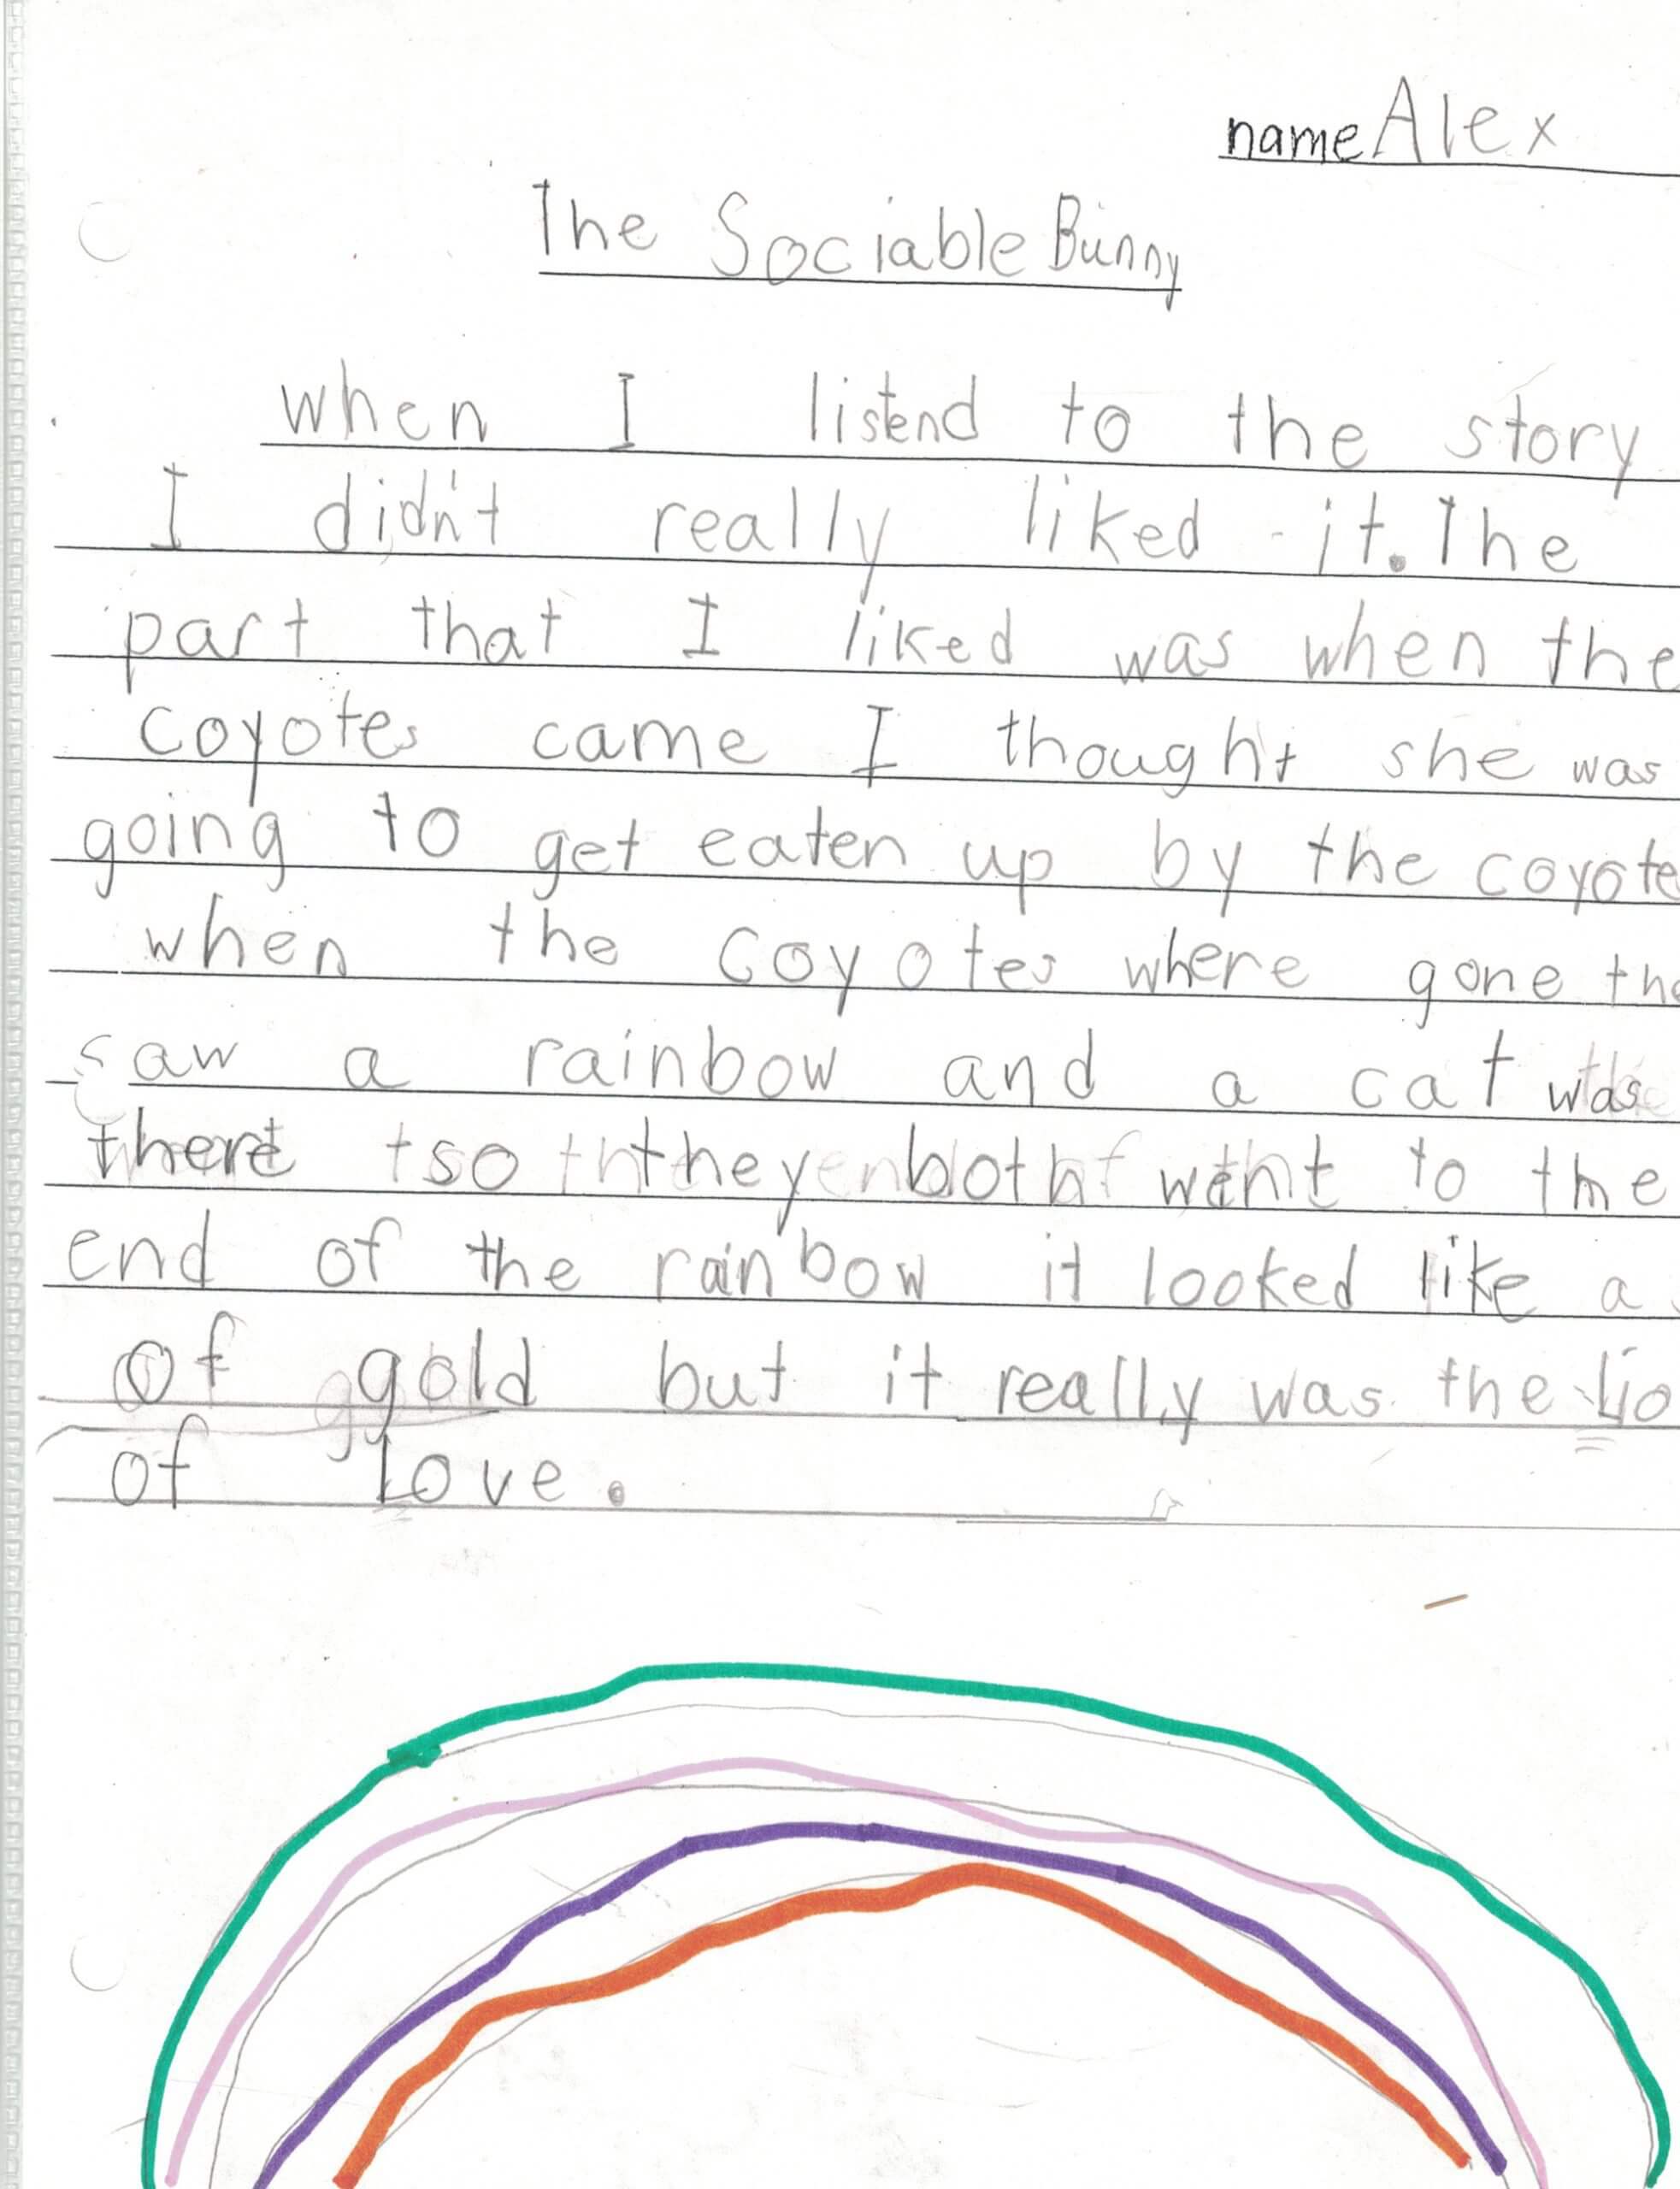 name Alex
The Sociable Bunny
when I listend to the story
I didn't really liked it. The
part that I liked was when the
coyotes came I thought she was
going to get eaten up by the coyote
when the coyotes where gone the
saw a rainbow and a cat was
there so they both went to the
end of the rainbow it looked like a
of gold but it really was the
of Love.